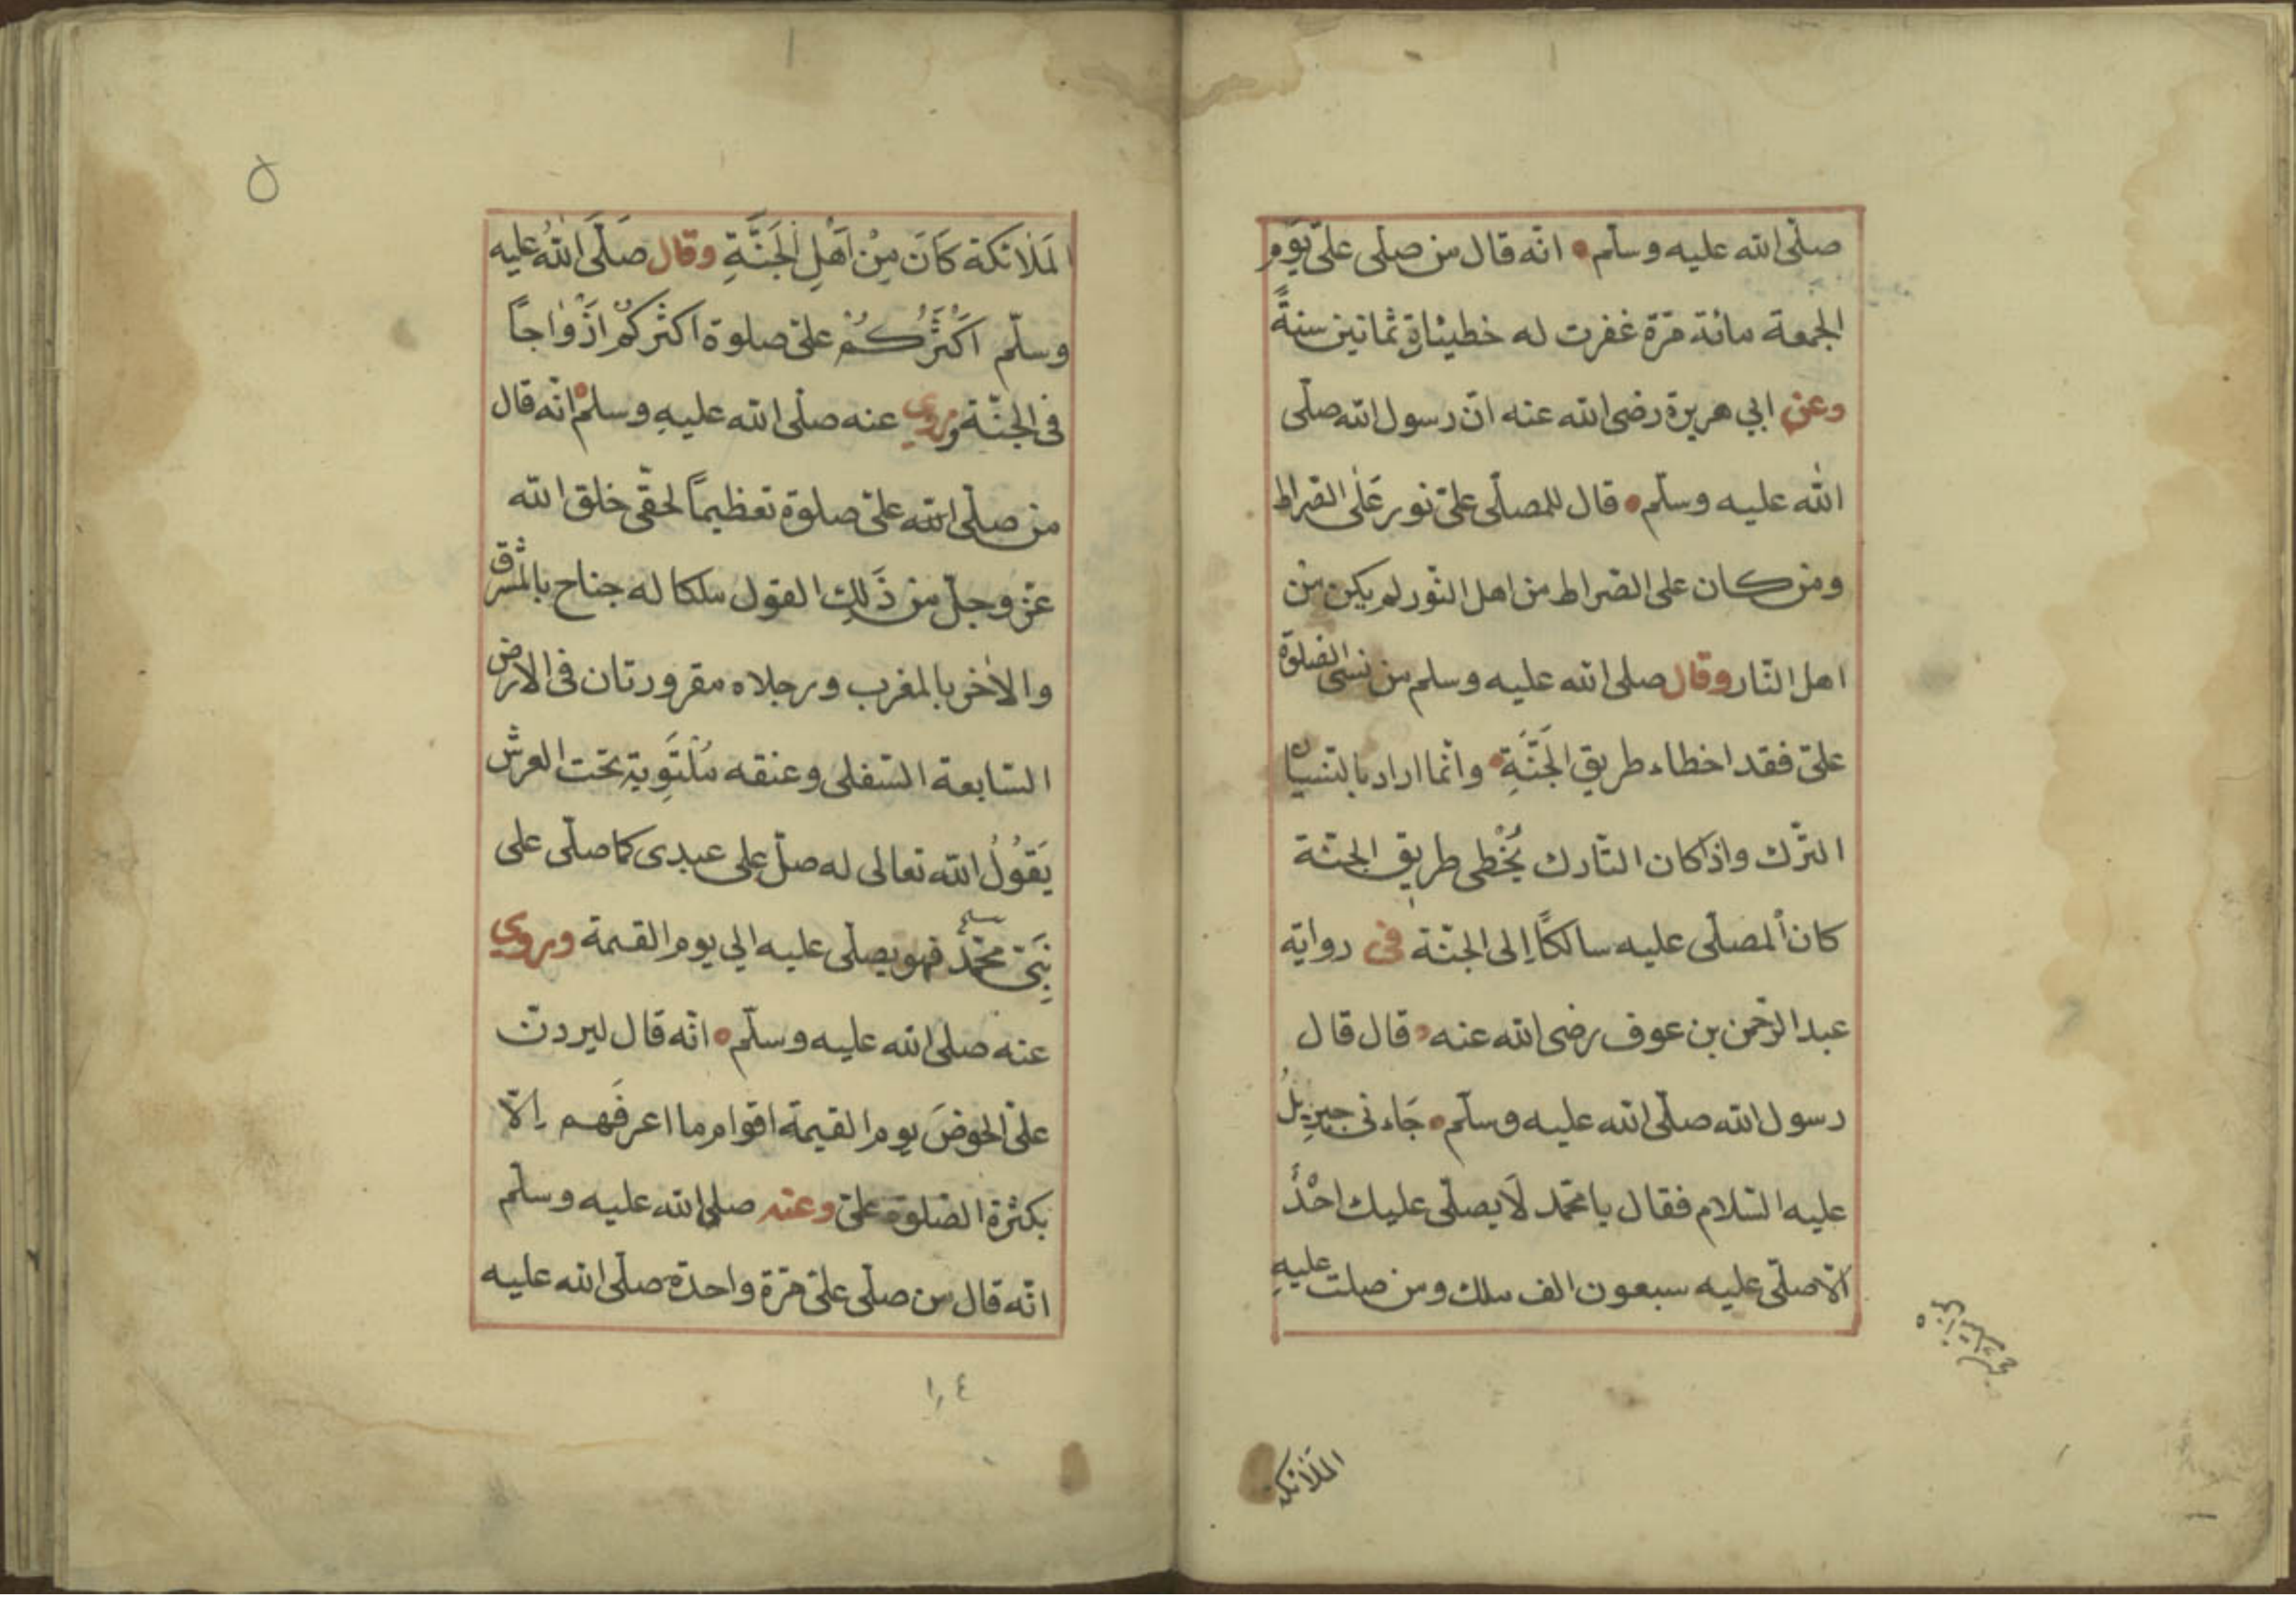 صلّى الله عليه وسلّم انّه قال من صلّى علىّ يَوْم
الجمعة مائة مرّة غفرت له خطيئاة ثمانين سنةً
وعن ابي هريرة رضى الله عنه انّ رسول الله صلّى
الله عليه وسلّم قال للمصلّى علىّ نور عَلَى الصّراط
ومن كان على الصّراط من اهل النّور لم يكن من
اهل النّار وقال صلى الله عليه وسلم من نسى الصّلوة
علىّ فقد اخطاء طريق الجَنَّةِ وانّما اراد بالنسيان
التّرك واذا كان التّارك يُخْطى طريق الجنّة
كان المصلّى عليه سالكًا اِلى الجنّة فى رواية
عبد الرّحمن بن عوف رضى الله عنه قال قال
رسول الله صلّى الله عليه وسلّم جَاءنى جبريلُ
عليه السّلام فقال يا محمّد لَا يصلّى عليك احْدٌ
الّا صلّى عليه سبعون الف ملك ومن صلت عليهِ
الملَائكة
٥
المَلائكة كَانَ مِنْ اَهْلِ الْجَنَّةِ وقال صَلَّى اللهُ عليه
وسلّم اَكْثَرُكُمْ علىّ صلوة اكثركُمْ اَزْوَاجاً
فى الجنّة وروي عنه صلّى الله عليهِ وسلم انّه قال
من صلّى الله علىّ صلوة تعظيماً لحقّى خلق الله
عزّ وجلّ من ذَلِك القول ملكا له جناح بالمشرق
والاخر بالمغرب ورجلاه مقرورتان فى الارض
السّابعة السّفلى وعنقه مُلْتَوِية تحت العرش
يَقُوْلُ الله تعالى له صلّ على عبدى كما صلّى على
نَبِىّ محمّد فهو يصلّى عليه الي يوم القيمة وروي
عنه صلى الله عليه وسلّم انّه قال ليردنّ
علىّ الحوضَ يوم القيمة اقوام ما اعرفَهم اِلّا
بكثرة الصّلوة علىّ وعنه صلى الله عليه وسلّم
انّه قال من صلّى علىّ مرّة واحدة صلّى الله عليه